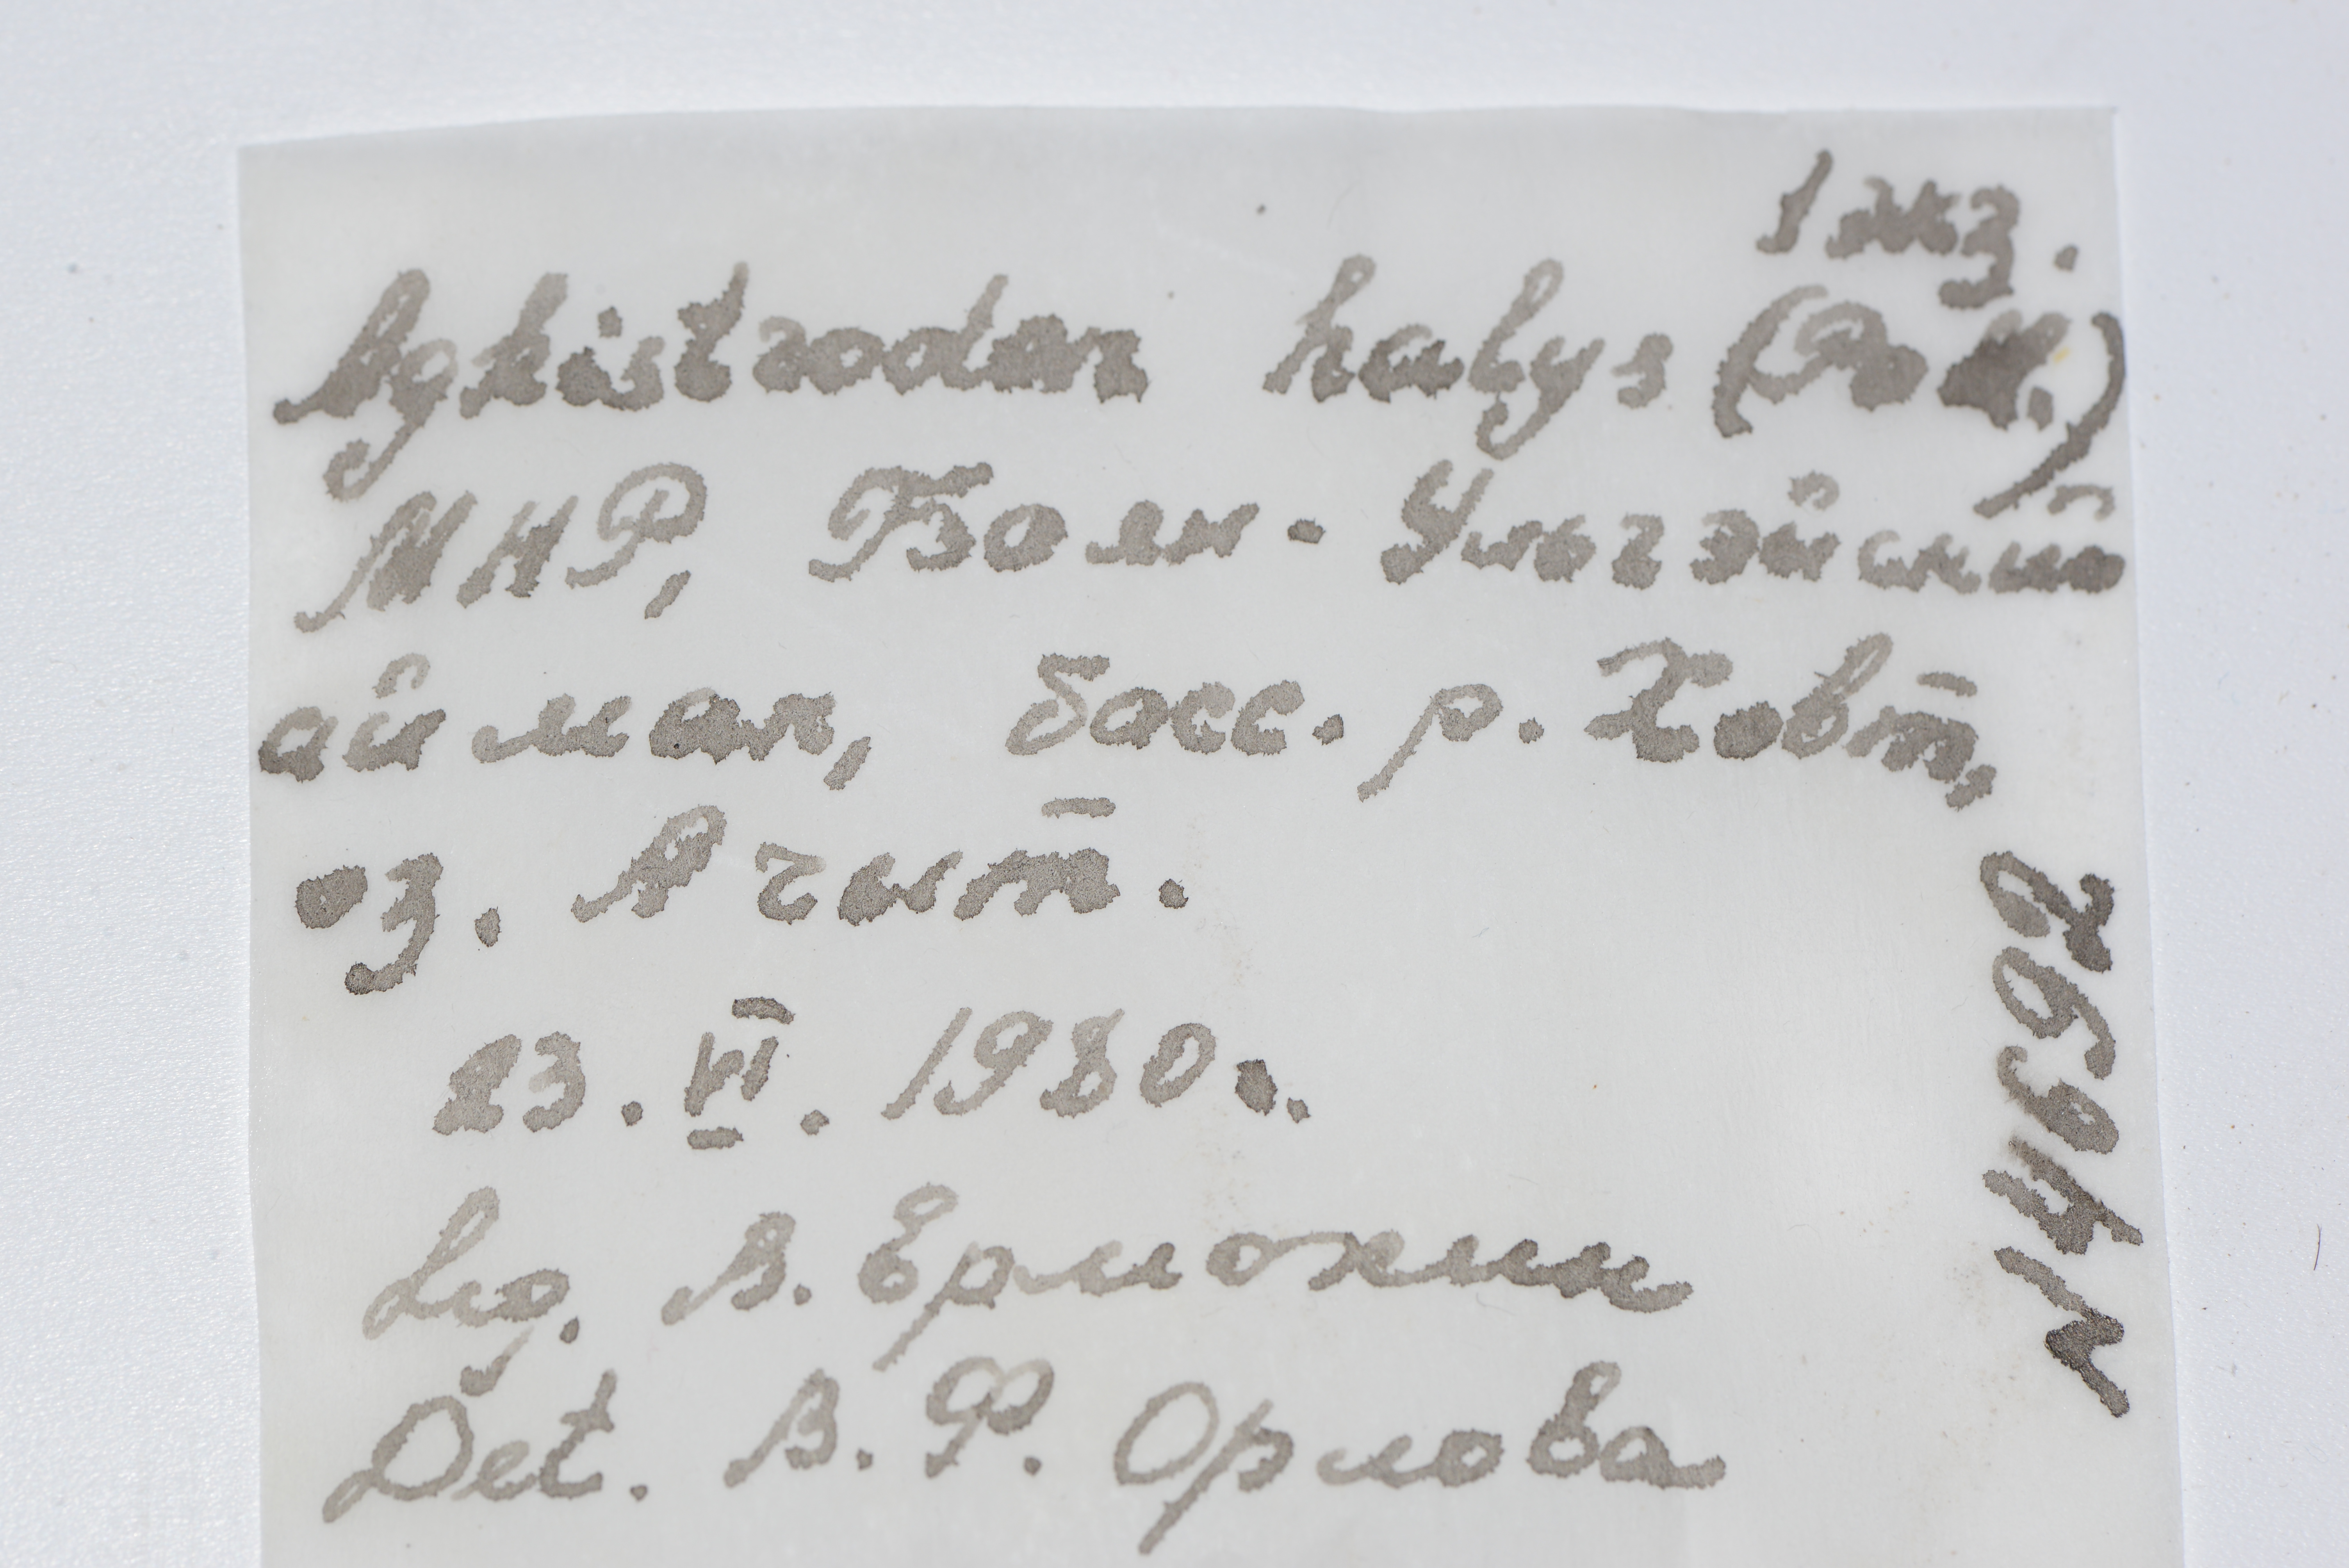 1 экз.
Agkistrodon halys (Pall.)
МНР, Баян-Ульгэйский
аймак, басс. р. Ховд,
оз. Ачит.
23.VI.1980г.
Lég. В. Ермохин
Det. В. Ф. Орлова
14692